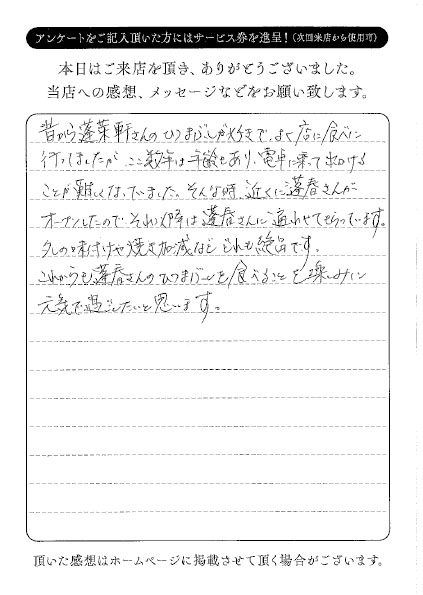 アンケートをご記入頂いた方にはサービス券を進呈!(次回来店から使用可)
本日はご来店を頂き、ありがとうございました。
当店への感想、メッセージなどをお願い致します。
昔から蓬莱軒さんのひつまぶしが大好きで、よく店に食べに
行ってましたが、ここ数年は年齢もあり、電車に乗って出かける
ことが難しくなっていました。そんな時、近くに蓬春さんが
オープンしたのでそれ以降は蓬春さんに通わせてもらっています。
タレの味付けや焼き加減など どれも絶品です。
これからも蓬春さんのひつまぶしを食べることを楽しみに
元気で過ごしたいと思います。
頂いた感想はホームページに掲載させて頂く場合がございます。